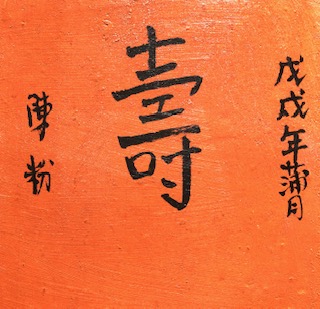 戊戌年蒲月
壽
陳粉